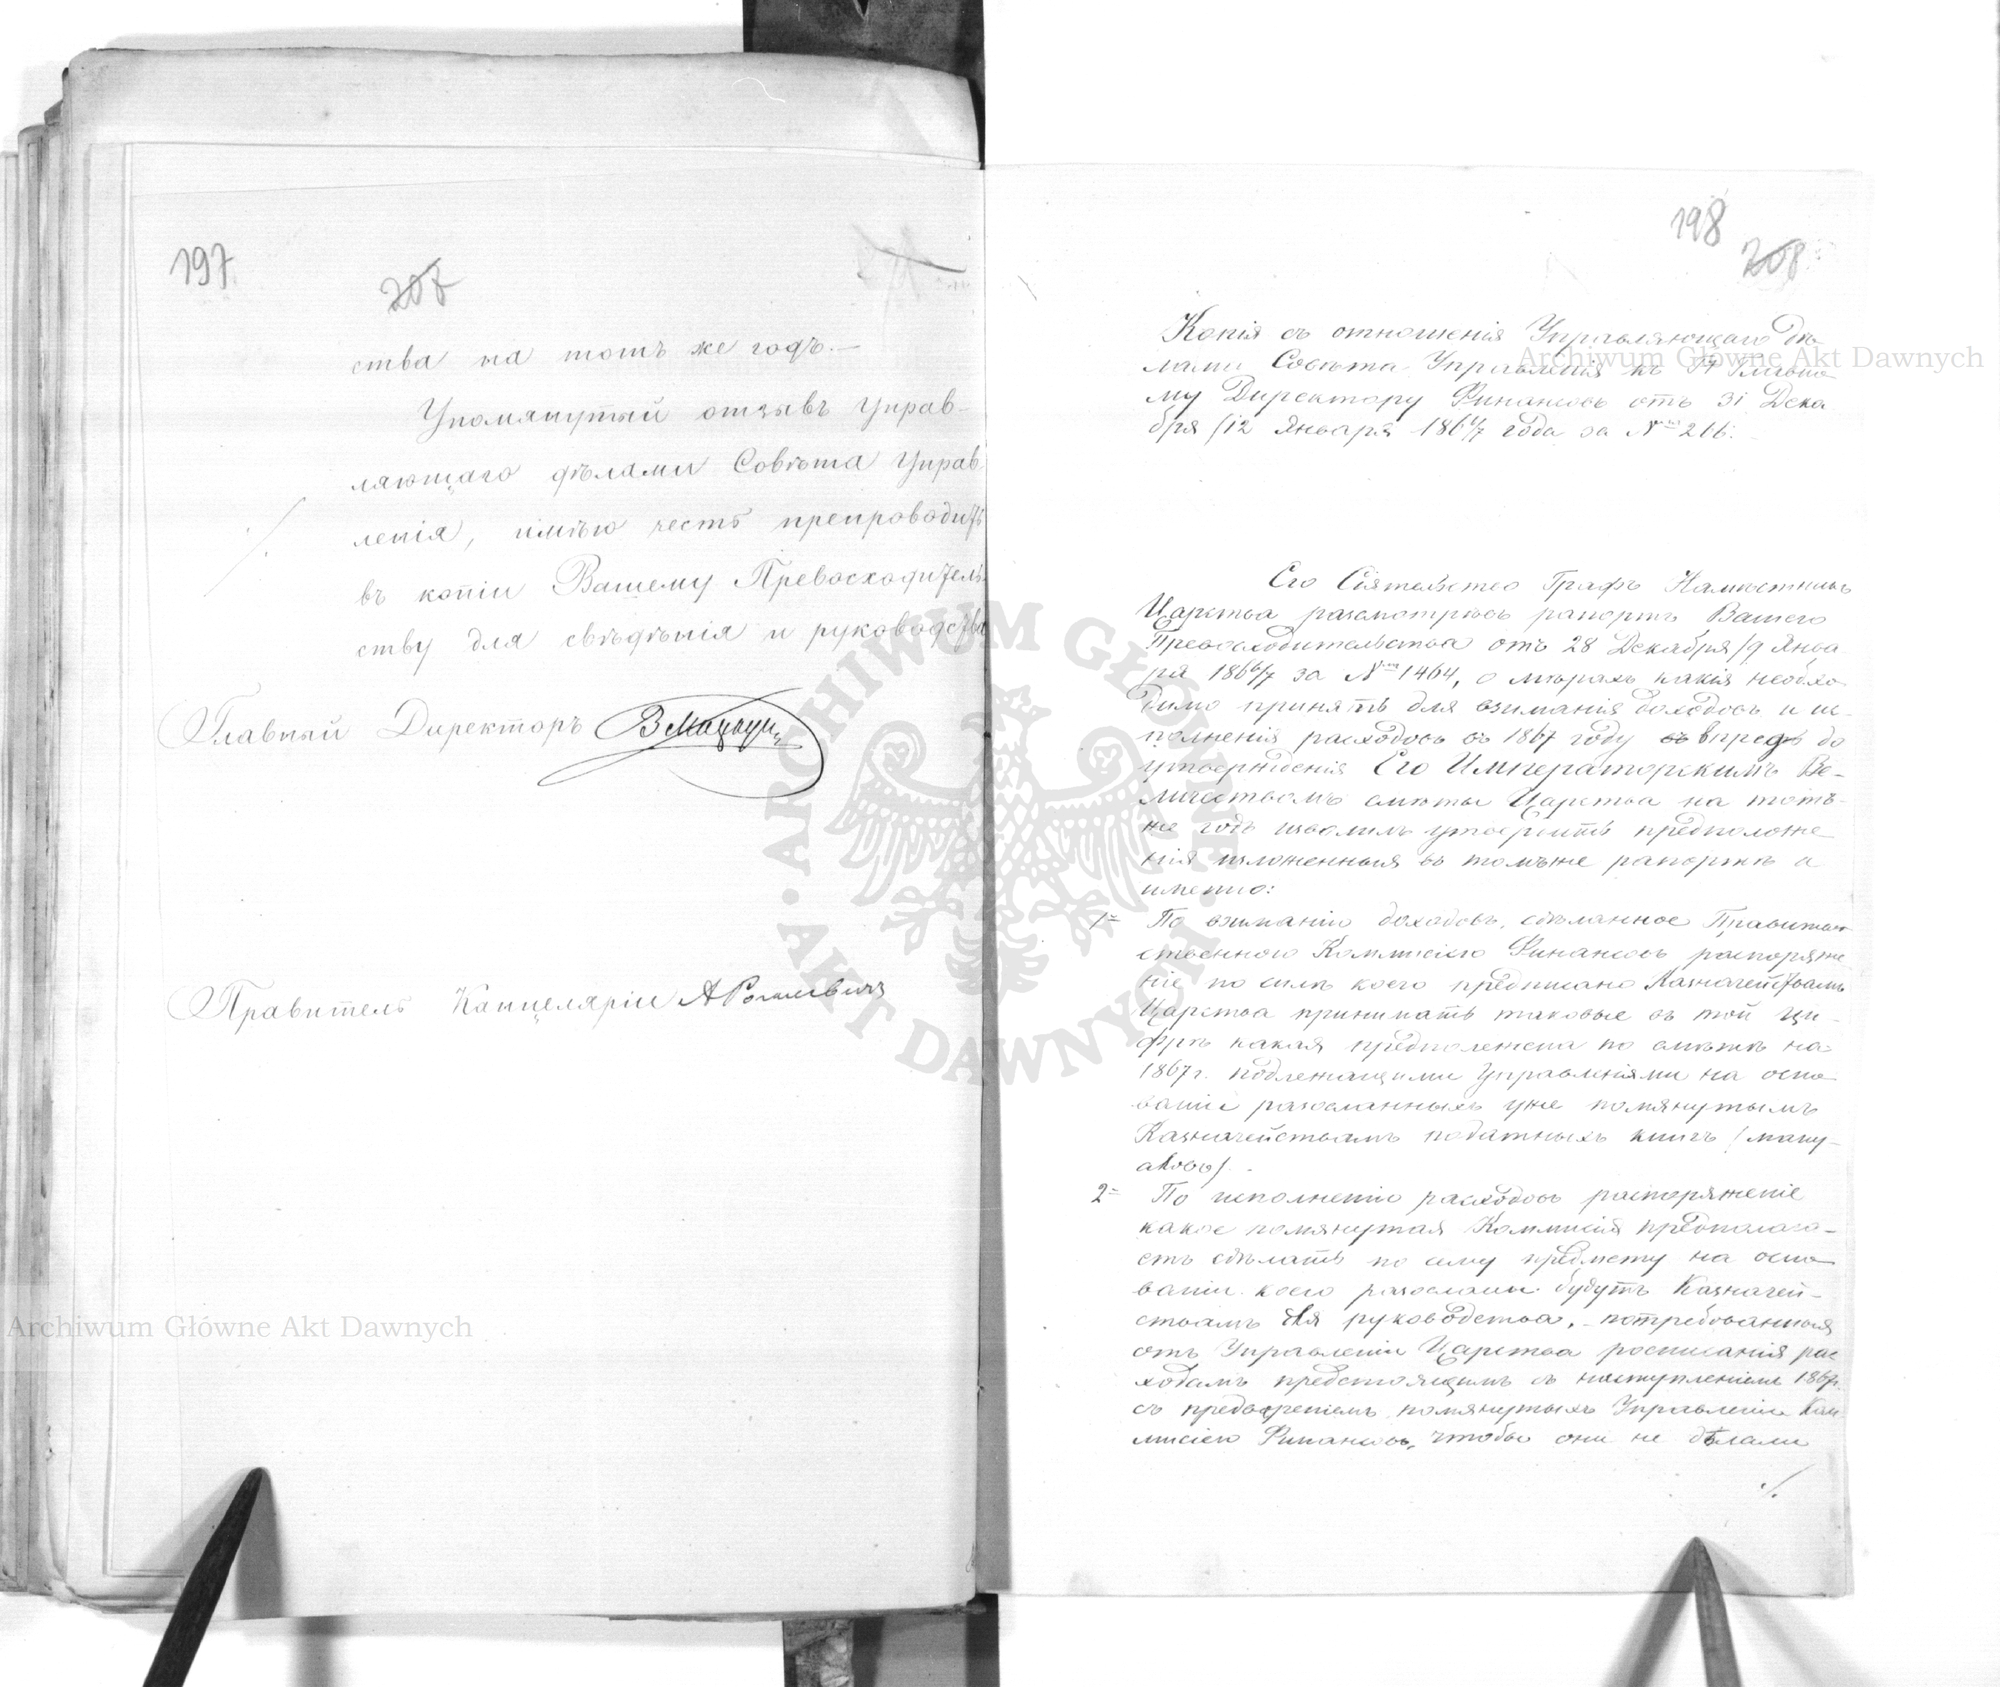 197
207
ства на тотъ же годъ. —
Упомянутый отзывъ Управ-
ляющаго дѣлами Совѣта Управ
ленія, имѣю честь препроводить
въ копіи Вашему Превосходитель-
ству для свѣдѣнія и руководства
Главный Директоръ
Правитель Канцеляріи
198
208
Копія съ отношенія Управляющаго дѣ-
лами Совѣта Управленія къ Главно
му Директору Финансовъ отъ 31 Дека
бря /12 Января 1866/7 года за № 216.
Его Сіятельство Графъ Намѣстникъ
Царства разсмотрѣвъ рапортъ Вашего
Превосходительства отъ 28 Декабря /9 Янва
ря 1866/7 за № 1464, о мѣрахъ какія необхо
димо принять для взиманія доходовъ и ис-
полненія расходовъ въ 1867 году впредь до
утвержденія Его Императорскимъ Ве-
личествомъ смѣты Царства на тотъ-
же годъ изволилъ утвердить предположе
нія изложенныя въ томъже рапортѣ а
именно:
1= По взиманію доходовъ, сдѣланное Правитель
ственною Коммисіею Финансовъ распоряже
ніе по силѣ коего предписано Казначействамъ
Царства принимать таковые въ той ци-
фрѣ какая предположена по смѣтѣ на
1867 г. подлежащими Управленіями на осно
ваніи разосланныхъ уже помянутымъ
Казначействамъ податныхъ книгъ /ману-
аловъ/. -
2= По исполненію расходовъ распоряженіе
какое помянутая Коммисія предполага-
етъ сдѣлать по сему предмету на осно
ваніи коего разосланы будутъ Казначей-
ствамъ для руководства, потребованныя
отъ Управленіи Царства росписанія рас
ходамъ предстоящимъ съ наступленіемъ 1867 г.
съ предвареніемъ помянутыхъ Управленіи Ком
мисіею Финансовъ, чтобы они не дѣлали
./.
Archiwum Główne Akt Dawnych
Archiwum Główne Akt Dawnych
ARCHIWUM GŁÓWNE · AKT DAWNYCH ·